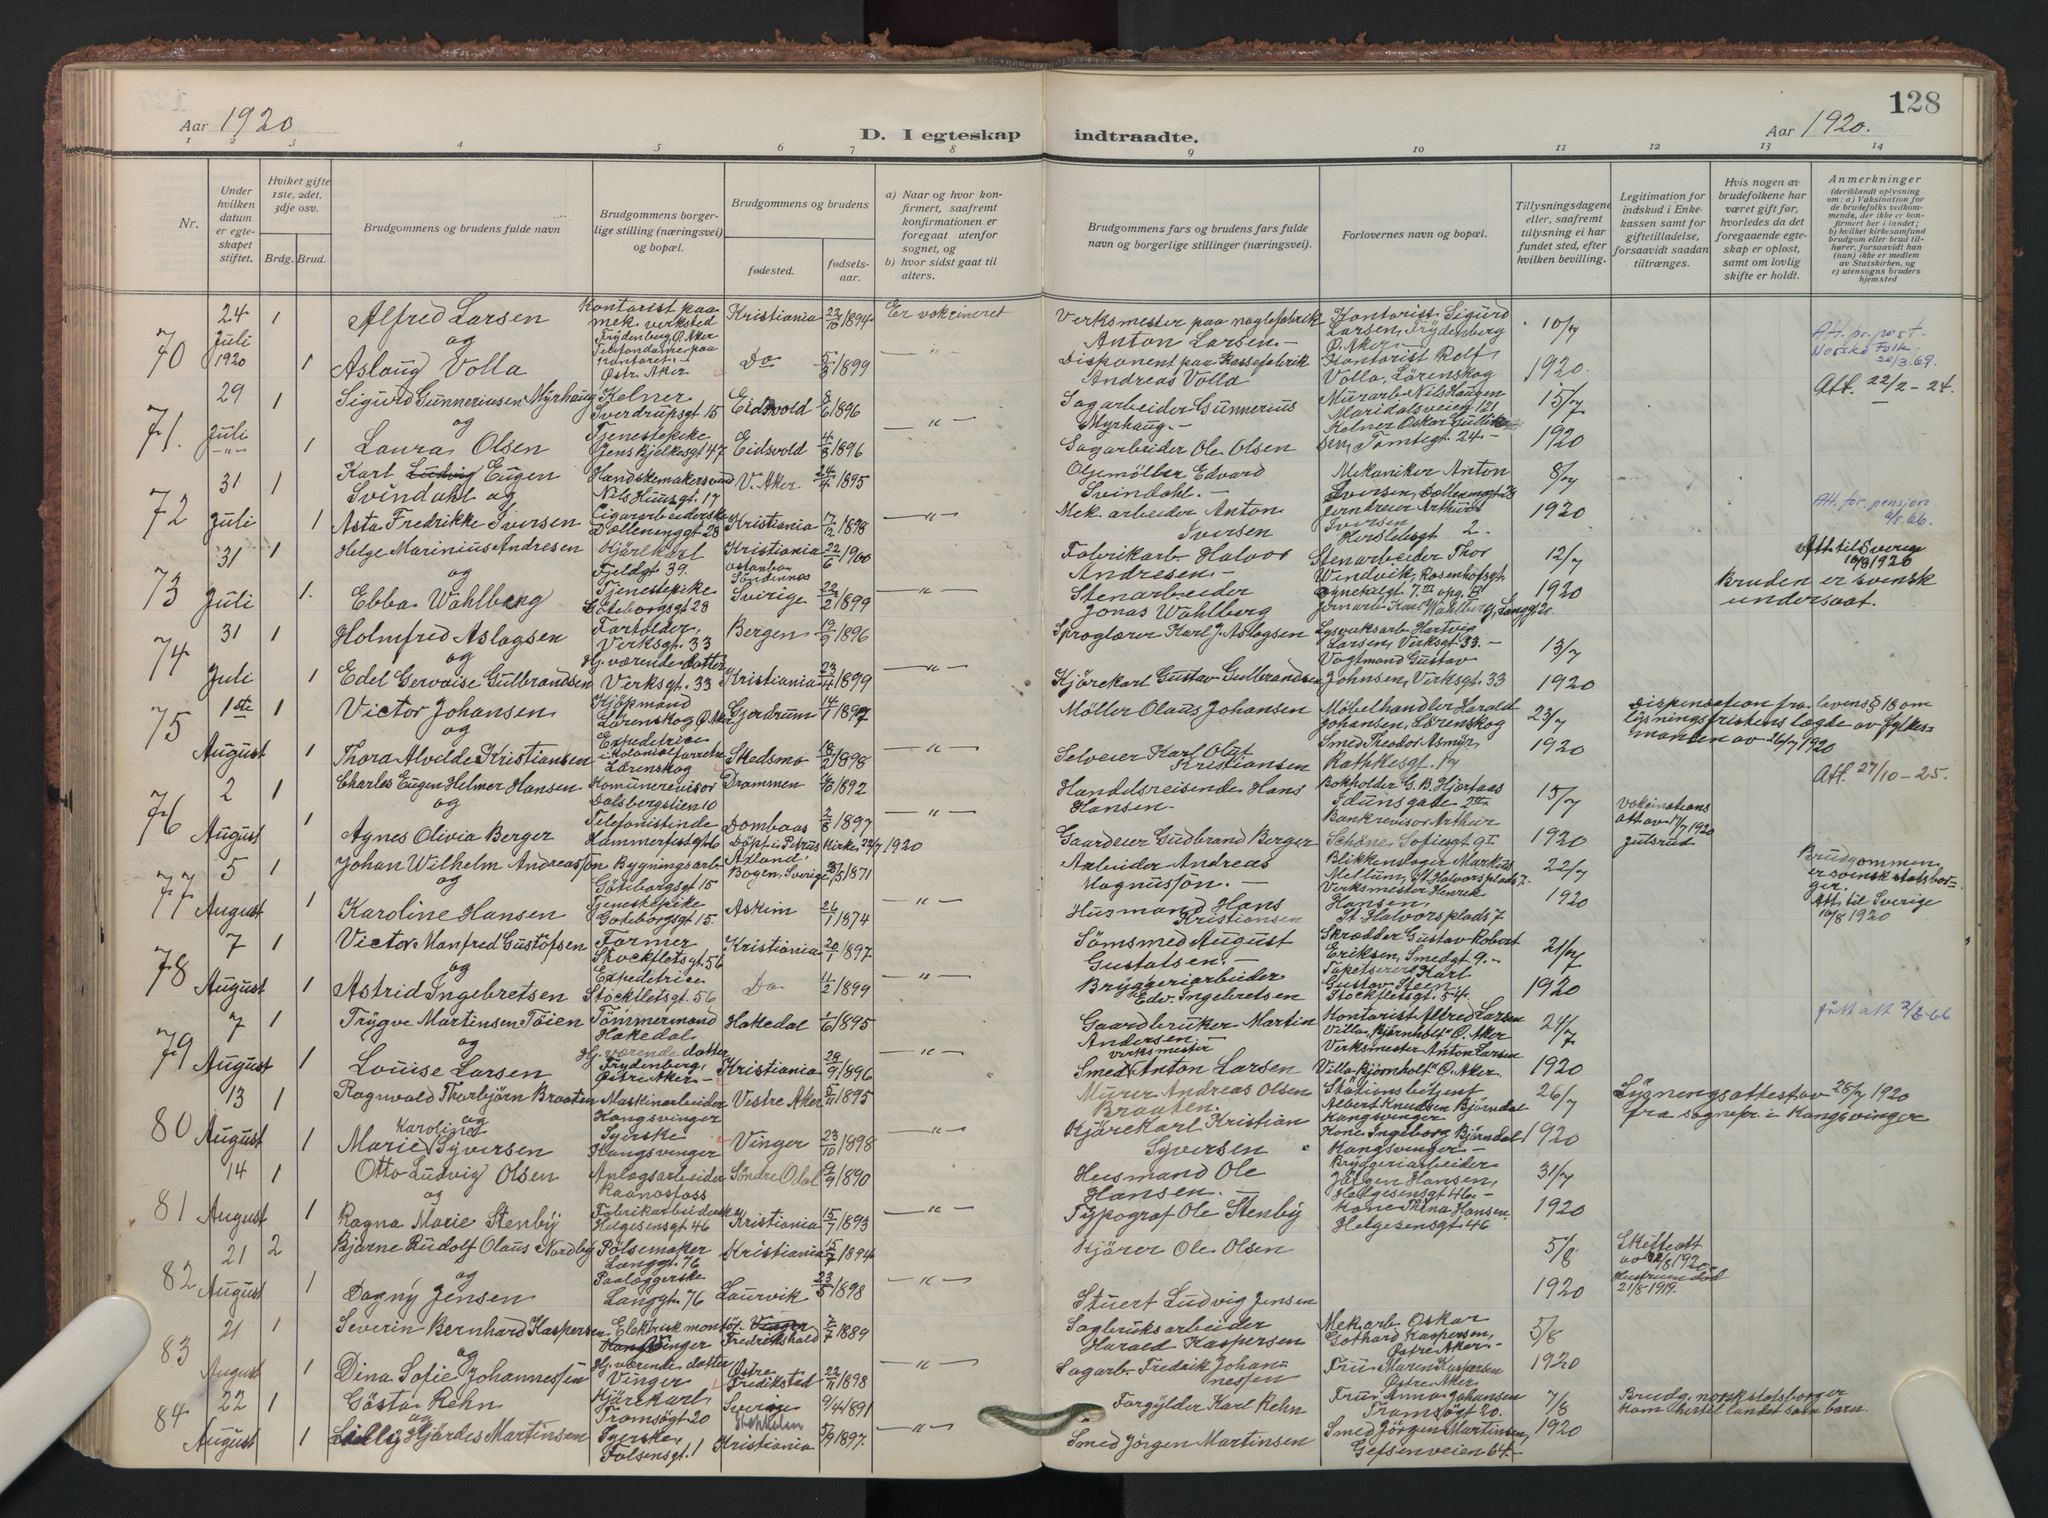 128
Aar 1920
D. I egteskap indtraadte.
Aar 1920.
1 2 3 4 5 6 7 8 9 10 11 12 13 14
Nr.
Under hvilken datum er egteskapet stiftet.
Hviket gifte 1ste, 2det, 3dje osv.
Brdg. Brud.
Brudgommens og brudens fulde navn
Brudgommens borgerlige stilling (næringsvei) og bopæl.
Brudgommens og brudens
fødested.
fødselsaar.
a) Naar og hvor konfirmert, saafremt konfirmationen er foregaat utenfor sognet, og
b) hvor sidst gaat til alters.
Brudgommens fars og brudens fars fulde navn og borgerlige stillinger (næringsvei).
Forlovernes navn og bopæl.
Tillysningsdagene eller, saafremt tillysning ei har fundet sted, efter hvilken bevilling.
Legitimation for indskud i Enkekassen samt for giftetilladelse, forsaavidt saadan tiltrænges.
Hvis nogen av brudefolkene har været gift før, hvorledes da det foregaaende egteskap er opløst, samt om lovlig skifte er holdt.
Anmerkninger
(deriblandt oplysning om: a) Vaksination for de brudefolks vedkommende, der ikke er konfirmert her i landet; b) hvilket kirkesamfund brudgom eller brud tilhører, forsaavidt han (hun) ikke er medlem av Statskirken, og c) utensogns bruders hjemsted
70 24 Juli 1920 1 Alfred Larsen Kontorist paa mek. verksted Frydenberg Ø. Aker Kristiania 22/10 1894 Er vakcineret Verksmester paa naglefabrik Anton Larsen Kontorist Sigurd Larsen, Frydenberg Ø. Aker 10/7
og
1 Aslaug Volla Telefondame paa kontoret Østr. Aker Do 5/8 1899 Disponent paa Kassefabrik Andreas Volla Kontorist Rolf Volla, Lørenskog 1920
Att. pr. post. Norske Folk 20/3.69.
Att. 22/2-24.
71. 29 Juli 1 Sigurd Gunneriusen Myrhaug Kelner Sverdrupsgt 15 Eidsvold 8/6 1896 Sagarbeider Gunnerius Myrhaug Murarb Nils Haugen Maridalsveien 121 15/7
og
1 Laura Olsen Tjenestepike Jens Bjelkesgt 47 Eidsvold 4/8 1896 Sagarbeider Ole Olsen Kelner Oskar Tomtegt 24 1920
72 31 Juli 1 Karl Ludvig Eugen Svindahl og Handskemakersvend Nils Huusgt. 17 V. Aker 24/4 1895 Oljemöller Edvard Svindahl. Mekaniker Anton Iversen, Dælleneggt 28 8/7
1 Asta Fredrikke Iversen Cigararbeiderske Dælleneggt 28 Kristiania 17/12 1898 Mek. arbeider Anton Iversen Jerndreier Arthur Iversen Herslebsgt 2. 1920
Att. for. pensjon 9/8.66.
73 31 Juli 1 Helge Marinius Andresen Kjörekarl Fjeldgt. 39. Kristiania 22/6 1900 Fabrikarb Halvor Andresen Stenarbeider Thor Wendvik, Rosenhofsgt 12/7
og
1. Ebba Wahlberg Tjenestepike Göteborgsgt 28 Sverige 22/2 1899 Stenarbeider Jonas Wahlberg Jernarb Karl Wahlberg 1920
Bruden er svensk undersaat.
Att. til Sverige 10/8 1926
74 31 Juli 1 Holmfred Aslagsen Fortolder, Verksgt. 33 Bergen 19/9 1896 Sproglærer Karl J. Aslagsen Lysverksarb Hartvig Larsen, Verksgt 33. 13/7
og
1 Edel Gervaise Gulbrandsen Hj. værende datter Verksgt. 33 Kristiania 23/4 1899 Kjörekarl Gustav Gulbrandsen Vogtmand Gustav Johnsen, Verksgt. 33 1920
75 1ste August 1 Victor Johansen Kjöpmand Lörenskog Ø. Aker Gjerdrum 14/1 1897 Möller Olaus Johansen Möbelhandler Harald Johansen, Lörenskog 23/7
og
1 Thora Alvilde Kristiansen Expeditrice i Kolonialforretn Lørenskog Skedsmo 18/2 1898 Selveier Karl Olut Kristiansen Smed Theodor Asmyr Rathkesgt. 17 1920
Dispensation fra lovens § 18 om lysningsfristens lögde av fylkesmanden av 26/7 1920
76 2 August 1 Charles Eugen Helmer Hansen Komunerevisor Dalsbergstien 10 Drammen 4/10 1892 Handelsreisende Hans Hansen Bokholder G. B. Hjortaas Idunsgate 15/7
og
1 Agnes Olivia Berger Telefonistinde Hammerfestgt 6 Dombaas 2/8 1897 Gaardeier Gudbrand Berger Bankrevisor Arthur Schöne, Sofiesgt 9 I 1920
Döpt i Petrus kirke 22/7 1920
Vakcinations att av 17/7 1920 Julsrud
Att. 27/10-25.
77 5 August 1 Johan Wilhelm Andreassön Bygningsarb Göteborgsgt 15 Bogen, Sverige /5 1871 Arbeider Andreas Magnussön. Blikkenslager Markus Mellum, St. Halvorsplads 7. 22/7
og
1 Karoline Hansen Tjenestepike Göteborgsgt 15. Askim 26/1 1874 Husmand Hans Kristiansen Verksmester Henrik Hansen, St. Halvorsplads 7 1920
Brudgommen er svensk statsborger. Att. til Sverige 10/8 1920
78 7 August 1 Victor Manfred Gustofsen Former Stockfletsgt 56 Kristiania 20/1 1897 Sömsmed August Gustafsen. Skrædder Gustav Robert Eriksen, Smedgt 9. 21/7
og
1 Astrid Ingebretsen Expeditrice Stockfletsgt. 56 Do 11/2 1899 Bryggeriarbeider Edv. Ingebretsen Tapetserer Karl Gustav Steen Stockfletsgt. 54. 1920
79 7 August 1 Trygve Martinsen Töien Tömmermand Hakedal Hakedal 1/6 1895 Gaardbruker Martin Andersen Kontorist Alfred Larsen Villa "Bjørnholt" Ø. Aker 24/7
og
1 Louise Larsen Hj. værende datter Frydenberg, Østre Aker Kristiania 28/9 1896 verksmester Smed Anton Larsen Verksmester Anton Larsen Villa Bjørnholt" Ø. Aker. 1920
fått att 3/6-66
80 13 August 1 Ragnvald Thorbjörn Braaten Maskinarbeider Kongsvinger Vestre Aker 5/11 1895 Murer Andreas Olsen Braaten. Stationsbetjent Albert Knudsen Bjørndal Kongsvinger 26/7
og
1 Marie Karoline Syversen Syerske Kongsvinger Vinger 23/10 1898 Kjörekarl Kristian Syversen Kone Ingeborg Bjørndal Kongsvinger 1920
Lysningsattest av 28/7 1920 fra sognepr. i Kongsvinger
81 14 August 1 Otto Ludvig Olsen Anlægsarbeider Raanaasfoss Söndre Odal 19/9 1890 Husmand Ole Hansen. Bryggeriarbeider Jörgen Hansen, Helgesensgt 46. 31/7
og
1 Ragna Marie Stenby Fabrikarbeiderske Helgesensgt 46 Kristiania 15/7 1893 Typograf Ole Stenby Kone Thina Hansen Helgesensgt 46 1920
82 21 August 2 Bjarne Rudolf Olaus Nordby Pölsemaker Langgt. 76 Kristiania 15/7 1894 Kjörer Ole Olsen 5/8
og
1 Dagny Jensen Paalæggerske Langgt. 76 Laurvik 23/5 1898 Stuert Ludvig Jensen 1920
Skifteatt av 1920. Hustrun död 21/8-1919.
83 21 August 1 Severin Bernhard Kaspersen Elektrisk montör Kongsvinger Vinger Fredrikshald 2/7 1889 Sagbruksarbeider Harald Kaspersen Mek. arb. Oskar Gothard Kaspersen, Østre Aker 5/8
og
1 Dina Sofie Johannessen Hj. værende datter Vinger Østre Fredrikstad 22/11 1898 Sagarb. Fredrik Johannessen Fru Maren Kaspersen Østre Aker 1920
84 22 August 1 Gösta Rehn Kjörekarl Tromsögt 20 Sverige Stokholm 9/4 1891 Forgylder Karl Rehn Fru Anna Johansen Tromsögt 20. 7/8
og
1 Lilly Hjördis Martinsen Syerske, Falsensgt. 1 Kristiania 5/9 1897. Smed Jörgen Martinsen Smed Jörgen Martinsen, Gefsenveien 64. 1920
Brudg. norsk statsborger kom hertil landet som barn.